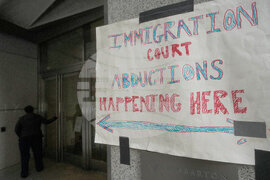 IMMIGRATION
COURT
ABDUCTIONS
HAPPENING HERE